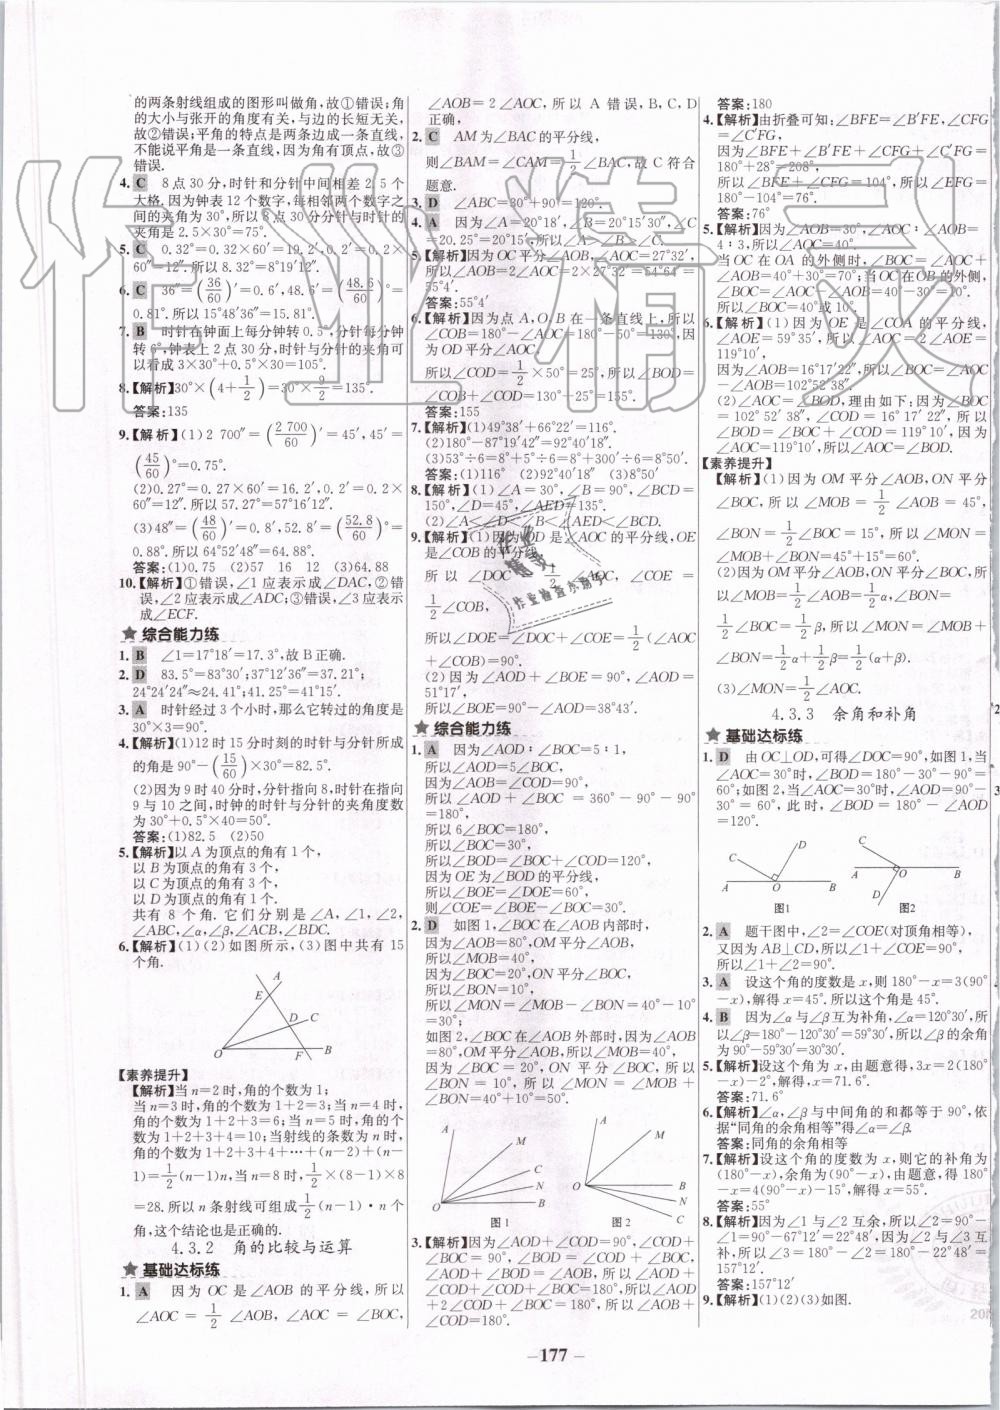 的两条射线组成的图形叫做角,故①错误;角
的大小与张开的角度有关,与边的长短无关,
故②错误;平角的特点是两条边成一条直线,
不能说平角是一条直线,因为角有顶点,故③
错误.
4. C 8点30分,时针和分针中间相差2.5个
大格.因为钟表12个数字,每相邻两个数字之
间的夹角为30°,所以8点30分分针与时针的
夹角是2.5×30°=75°.
5. C 0.32°=0.32×60′=19.2′,0.2′=0.2×
60″=12″.所以8.32°=8°19′12″.
6. C 36″=(36/60)′=0.6′,48.6′=(48.6/60)°=
0.81°.所以15°48′36″=15.81°.
7. B 时针在钟面上每分钟转0.5°,分针每分钟
转6°,钟表上2点30分,时针与分针的夹角可
以看成3×30°+0.5°×30=105°.
8.【解析】30°×(4+1/2)=30°×9/2=135°.
答案:135
9.【解析】(1)2 700″=(2 700/60)′=45′,45′=
(45/60)°=0.75°.
(2)0.27°=0.27×60′=16.2′,0.2′=0.2×
60″=12″.所以57.27°=57°16′12″.
(3)48″=(48/60)′=0.8′,52.8′=(52.8/60)°=
0.88°.所以64°52′48″=64.88°.
答案:(1)0.75 (2)57 16 12 (3)64.88
10.【解析】①错误,∠1应表示成∠DAC,②错
误,∠2应表示成∠ADC;③错误,∠3应表示
成∠ECF.
★综合能力练
1. B ∠1=17°18′=17.3°,故B正确.
2. D 83.5°=83°30′;37°12′36″=37.21°;
24°24′24″≈24.41°;41.25°=41°15′.
3. A 时针经过3个小时,那么它转过的角度是
30°×3=90°.
4.【解析】(1)12时15分时刻的时针与分针所成
的角是90°-(15/60)×30°=82.5°.
(2)因为9时40分时,分针指向8,时针在指向
9与10之间,时钟的时针与分针的夹角度数
为30°+0.5°×40=50°.
答案:(1)82.5 (2)50
5.【解析】以A为顶点的角有1个,
以B为顶点的角有3个,
以C为顶点的角有3个,
以D为顶点的角有1个.
共有8个角.它们分别是∠A,∠1,∠2,
∠ABC,∠α,∠β,∠ACB,∠BDC.
6.【解析】(1)(2)如图所示,(3)图中共有15
个角.
A
E
D
C
O
F
B
【素养提升】
【解析】当n=2时,角的个数为1;
当n=3时,角的个数为1+2=3;当n=4时,
角的个数为1+2+3=6;当n=5时,角的个数
为1+2+3+4=10;当射线的条数为n时,
角的个数为1+2+3+4+…+(n-2)+(n-
1)=1/2(n-1)n,当n=8时,1/2×(8-1)×8
=28.所以n条射线可组成1/2(n-1)·n个
角,这个结论也是正确的.
4.3.2 角的比较与运算
★基础达标练
1. A 因为OC是∠AOB的平分线,所以
∠AOC=1/2∠AOB,∠AOC=∠BOC,
∠AOB=2∠AOC,所以A错误,B,C,D
正确.
2. C AM为∠BAC的平分线,
则∠BAM=∠CAM=1/2∠BAC,故C符合
题意.
3. D ∠ABC=30°+90°=120°.
4. A 因为∠A=20°18′,∠B=20°15′30″,∠C
=20.25°=20°15′,所以∠A>∠B>∠C.
5.【解析】因为OC平分∠AOB,∠AOC=27°32′,
所以∠AOB=2∠AOC=2×27°32′=54°64′=
55°4′.
答案:55°4′
6.【解析】因为点A,O,B在一条直线上,所以
∠COB=180°-∠AOC=180°-50°=130°,因
为OD平分∠AOC,
所以∠COD=1/2×50°=25°,所以∠BOD=
∠COB+∠COD=130°+25°=155°.
答案:155
7.【解析】(1)49°38′+66°22′=116°.
(2)180°-87°19′42″=92°40′18″.
(3)53°÷6=8°+5°÷6=8°+300′÷6=8°50′.
答案:(1)116° (2)92°40′18″ (3)8°50′
8.【解析】(1)∠A=30°,∠B=90°,∠BCD=
150°,∠D=45°,∠AED=135°.
(2)∠A<∠D<∠B<∠AED<∠BCD.
9.【解析】(1)因为OD是∠AOC的平分线,OE
是∠COB的平分线,
所以∠DOC=1/2∠AOC,∠COE=
1/2∠COB,
所以∠DOE=∠DOC+∠COE=1/2(∠AOC
+∠COB)=90°.
(2)因为∠AOD+∠BOE=90°,∠AOD=
51°17′,
所以∠BOE=90°-∠AOD=38°43′.
★综合能力练
1. A 因为∠AOD∶∠BOC=5∶1,
所以∠AOD=5∠BOC,
因为∠AOB=∠COD=90°,
所以∠AOD+∠BOC=360°-90°-90°
=180°,
所以6∠BOC=180°,
所以∠BOC=30°,
所以∠BOD=∠BOC+∠COD=120°,
因为OE为∠BOD的平分线,
所以∠BOE=∠DOE=60°,
则∠COE=∠BOE-∠BOC=30°.
2. D 如图1,∠BOC在∠AOB内部时,
因为∠AOB=80°,OM平分∠AOB,
所以∠MOB=40°.
因为∠BOC=20°,ON平分∠BOC,
所以∠BON=10°,
所以∠MON=∠MOB-∠BON=40°-10°
=30°;
如图2,∠BOC在∠AOB外部时,因为∠AOB
=80°,OM平分∠AOB,所以∠MOB=40°.
因为∠BOC=20°,ON平分∠BOC,所以
∠BON=10°,所以∠MON=∠MOB+
∠BON=40°+10°=50°.
A
M
C
N
O
B
图1
A
M
B
N
C
O
图2
3.【解析】因为∠AOD+∠COB=90°,∠COD+
∠BOC=90°,∠BOD=∠COD+∠BOC,
∠AOD+∠BOD=180°,所以∠AOD+
∠COD+∠COD+∠BOC=180°,所以∠AOD
+2∠COD+∠BOC=180°,所以∠AOB+
∠COD=180°.
答案:180
4.【解析】由折叠可知:∠BFE=∠B′FE,∠CFG
=∠C′FG,
因为∠BFE+∠B′FE+∠CFG+∠C′FG=
180°+28°=208°,
所以∠BFE+∠CFG=104°,所以∠EFG=
180°-104°=76°.
答案:76°
5.【解析】因为∠AOB=30°,∠AOC∶∠AOB=
4∶3,所以∠AOC=40°.
当OC在OA的外侧时,∠BOC=∠AOC+
∠AOB=40°+30°=70°;当OC在OB的外侧,
∠BOC=∠AOC-∠AOB=40°-30°=10°.
所以∠BOC=70°或10°.
6.【解析】(1)因为OE是∠COA的平分线,
∠AOE=59°35′,所以∠AOC=2∠AOE=
119°10′,
因为∠AOB=16°17′22″,所以∠BOC=∠AOC
-∠AOB=102°52′38″.
(2)∠AOC=∠BOD,理由如下:因为∠BOC
=102°52′38″,∠COD=16°17′22″,所以
∠BOD=∠BOC+∠COD=119°10′,因为
∠AOC=119°10′,所以∠AOC=∠BOD.
【素养提升】
【解析】(1)因为OM平分∠AOB,ON平分
∠BOC,所以∠MOB=1/2∠AOB=45°,
∠BON=1/2∠BOC=15°,所以∠MON=
∠MOB+∠BON=45°+15°=60°.
(2)因为OM平分∠AOB,ON平分∠BOC,所
以∠MOB=1/2∠AOB=1/2α,∠BON=
1/2∠BOC=1/2β,所以∠MON=∠MOB
+∠BON=1/2α+1/2β=1/2(α+β).
(3)∠MON=1/2∠AOC.
4.3.3 余角和补角
★基础达标练
1. D 由OC⊥OD,可得∠DOC=90°,如图1,当
∠AOC=30°时,∠BOD=180°-30°-90°=
60°;如图2,当∠AOC=30°时,∠AOD=90°-
30°=60°,此时,∠BOD=180°-∠AOD
=120°.
C
D
A
O
B
图1
C
A
O
B
D
图2
2. A 题干图中,∠2=∠COE(对顶角相等),
又因为AB⊥CD,所以∠1+∠COE=90°,
所以∠1+∠2=90°.
3. A 设这个角的度数是x,则180°-x=3(90°
-x),解得x=45°.所以这个角是45°.
4. B 因为∠α与∠β互为补角,∠α=120°30′,所
以∠β=180°-120°30′=59°30′,所以∠β的余角
为90°-59°30′=30°30′.
5.【解析】设这个角为x,由题意得,3x=2(180°
-x)-2°,解得,x=71.6°.
答案:71.6°
6.【解析】∠α,∠β与中间角的和都等于90°,依
据“同角的余角相等”得∠α=∠β.
答案:同角的余角相等
7.【解析】设这个角的度数为x,则它的补角为
(180°-x),余角为(90°-x),由题意,得180°
-x=4(90°-x)-15°,解得x=55°.
答案:55°
8.【解析】因为∠1与∠2互余,所以∠2=90°-
∠1=90°-67°12′=22°48′,因为∠2与∠3互
补,所以∠3=180°-∠2=180°-22°48′=
157°12′.
答案:157°12′
9.【解析】(1)(2)(3)如图.
-177-
作业精灵